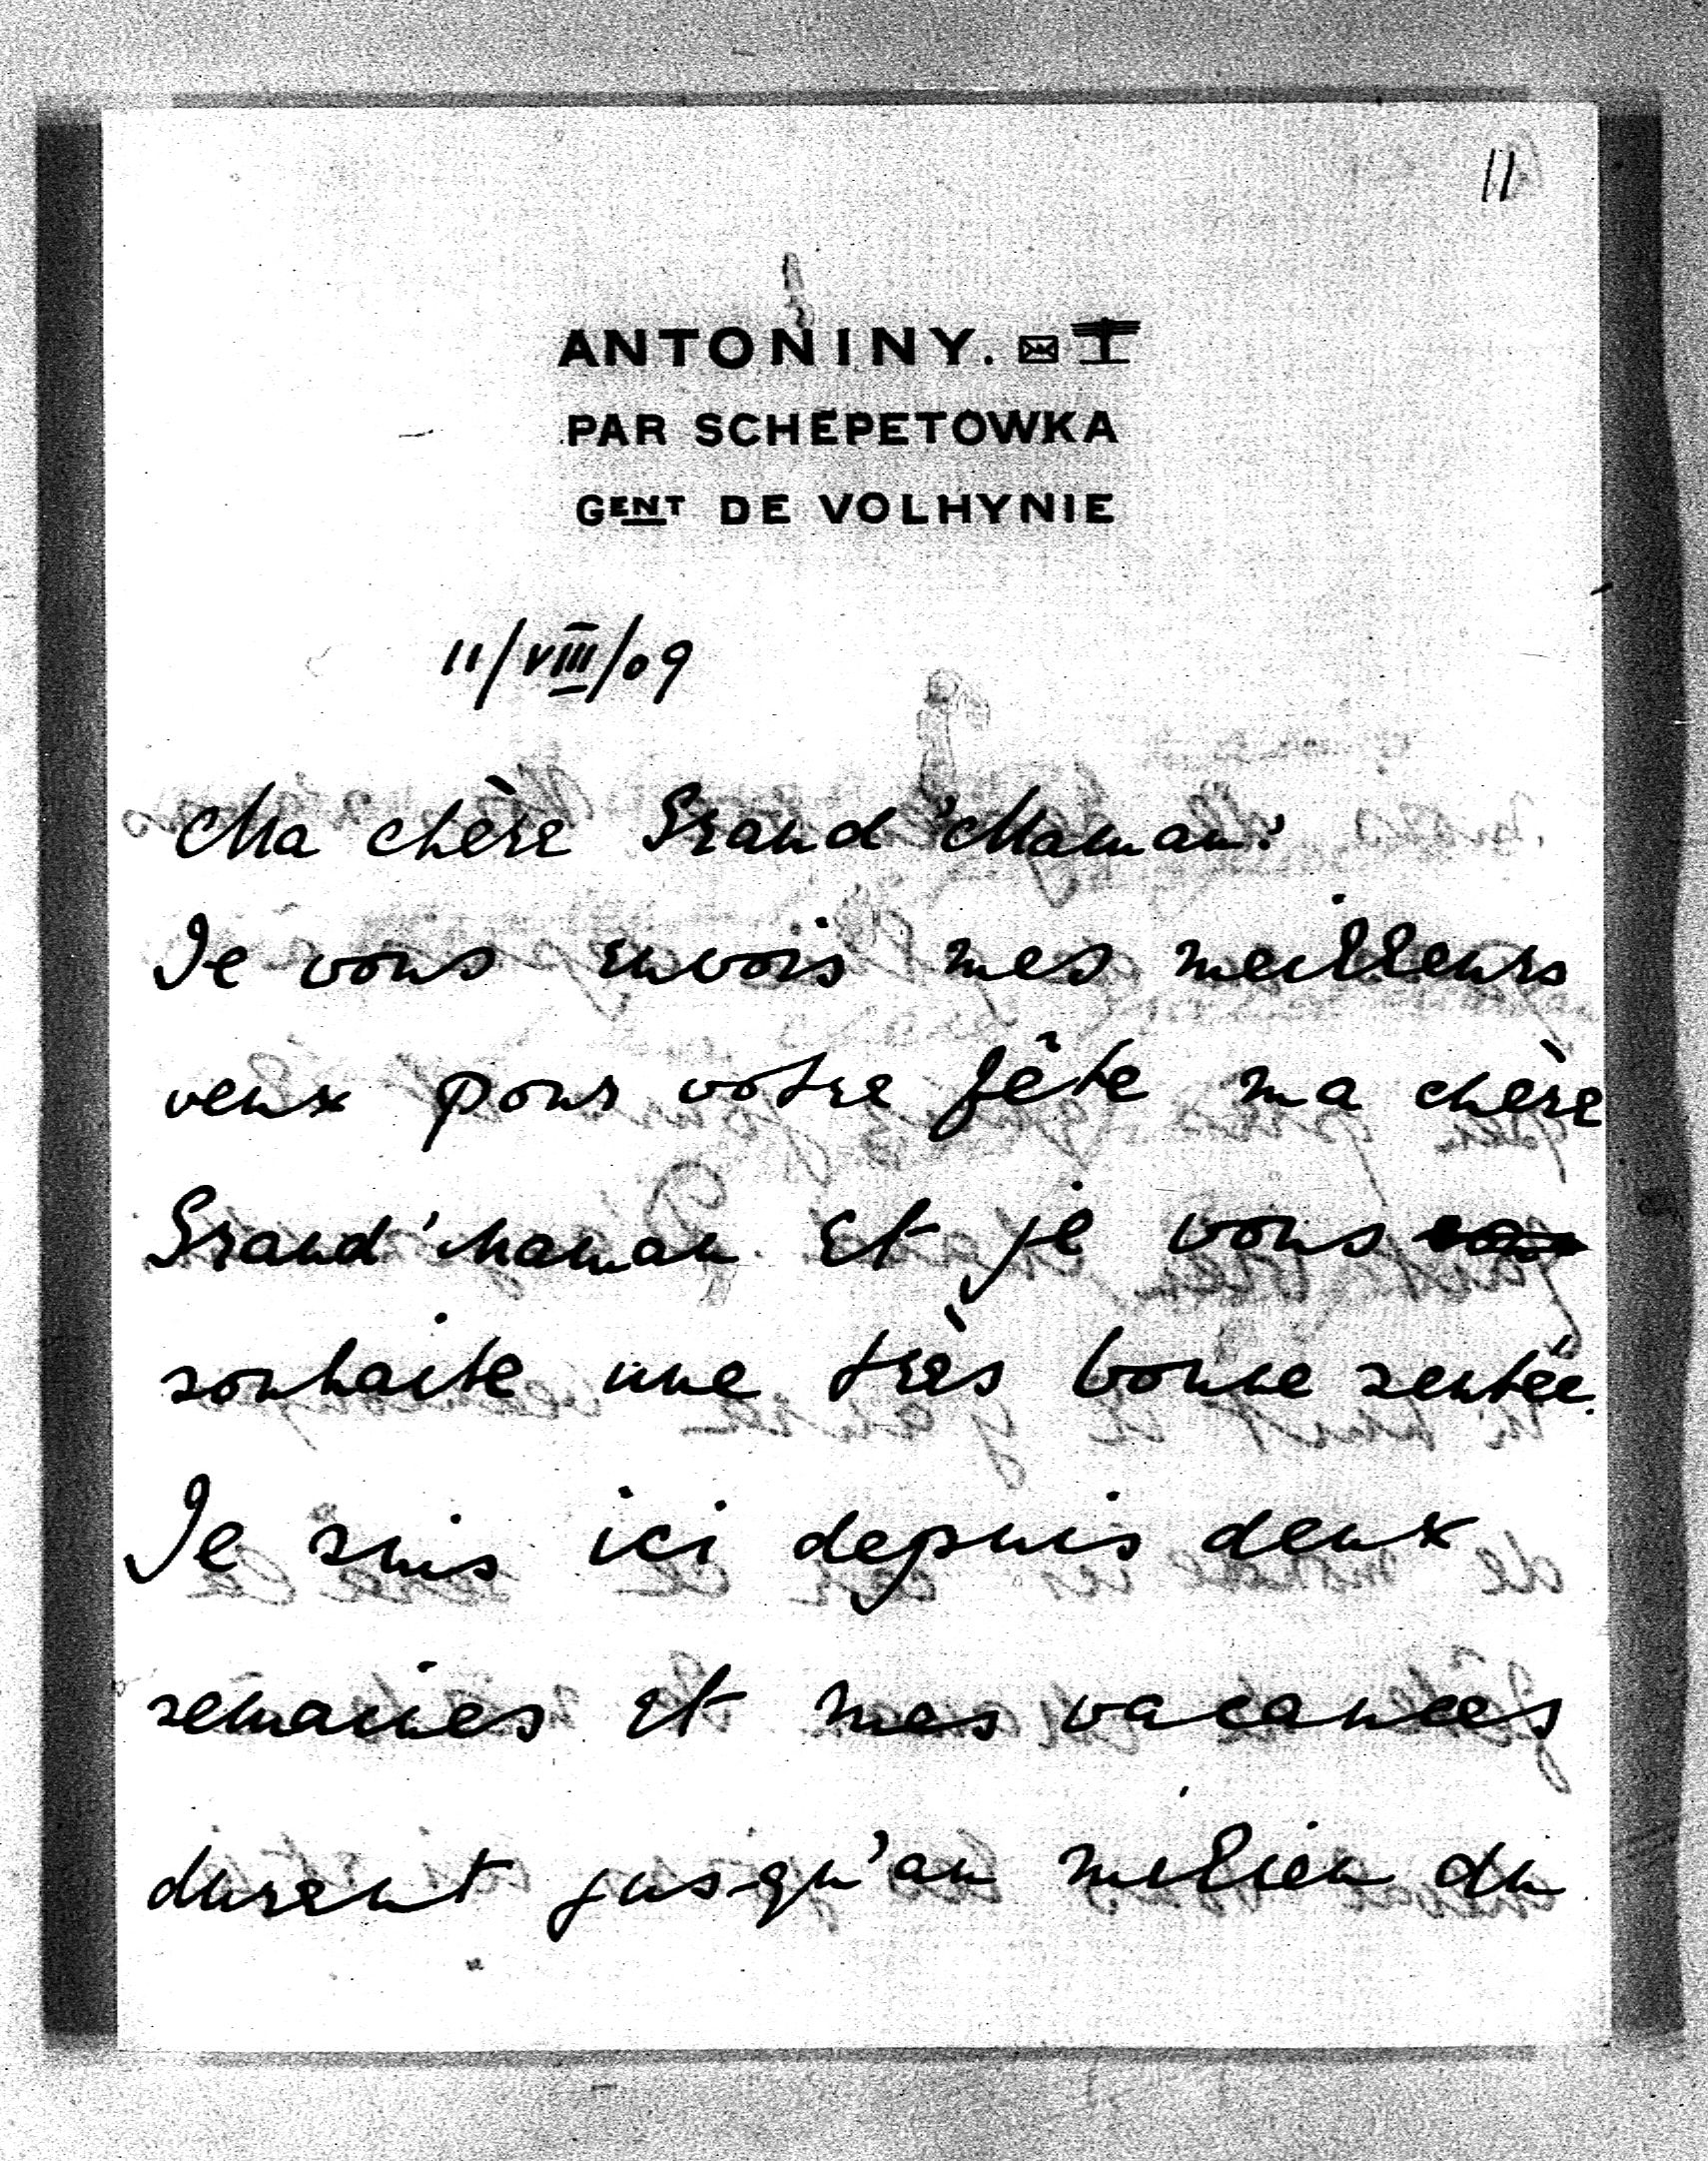 11
ANTONINY.
PAR SCHEPETOWKA
GENT DE VOLHYNIE
11/VIII/09
Ma chère Grand'Maman!
Je vous envois mes meilleurs
veux pour votre fête ma chère
Grand'Maman et je vous
souhaite une très bonne sentée.
Je suis ici depuis deux
semaines et mes vacances
durent jusqu'au milieu du